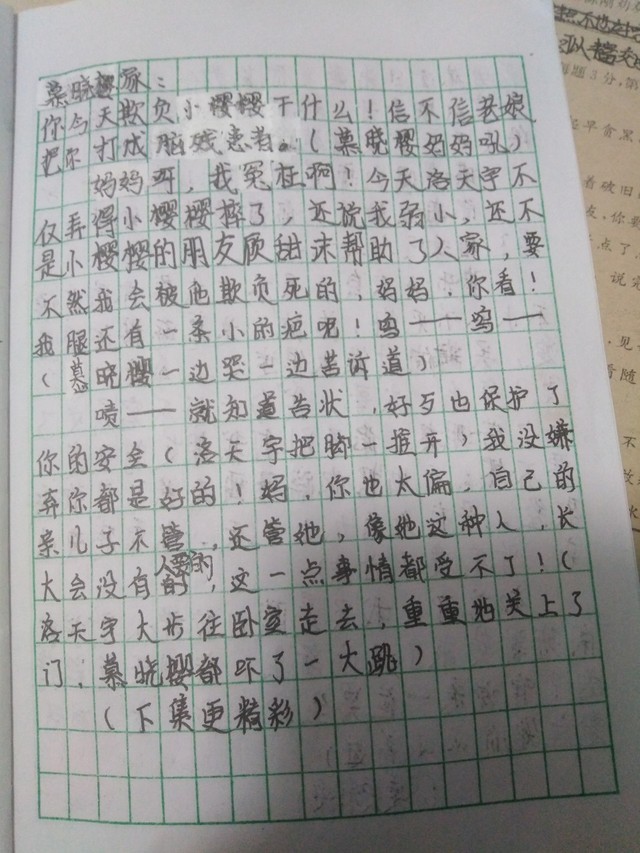 慕晓樱家：
你今天欺负小樱樱干什么！信不信老娘
把你打成脑残患者。（慕晓樱妈妈吼）
妈妈呀，我冤枉啊！今天洛天宇不
仅弄得小樱樱摔了，还说我弱小，还不
是小樱樱的朋友顾甜沫帮助了人家，要
不然我会被他欺负死的，妈妈，你看！
我腿还有一条小的疤呢！呜——呜——
（慕晓樱一边哭一边苦诉道）
啧——就知道告状，好歹也保护了
你的安全（洛天宇把脚一推开）我没嫌
弃你都是好的！妈，你也太偏，自己的
亲儿子不管，还管她，像她这种人，长
大会没有人要的的，这一点事情都受不了！（
洛天宇大步往卧室走去，重重地关上了
门，慕晓樱都吓了一大跳）
（下集更精彩）
每题3分，第
起早贪黑
着破旧
友，你要
点了
说完
见
看随
不
水